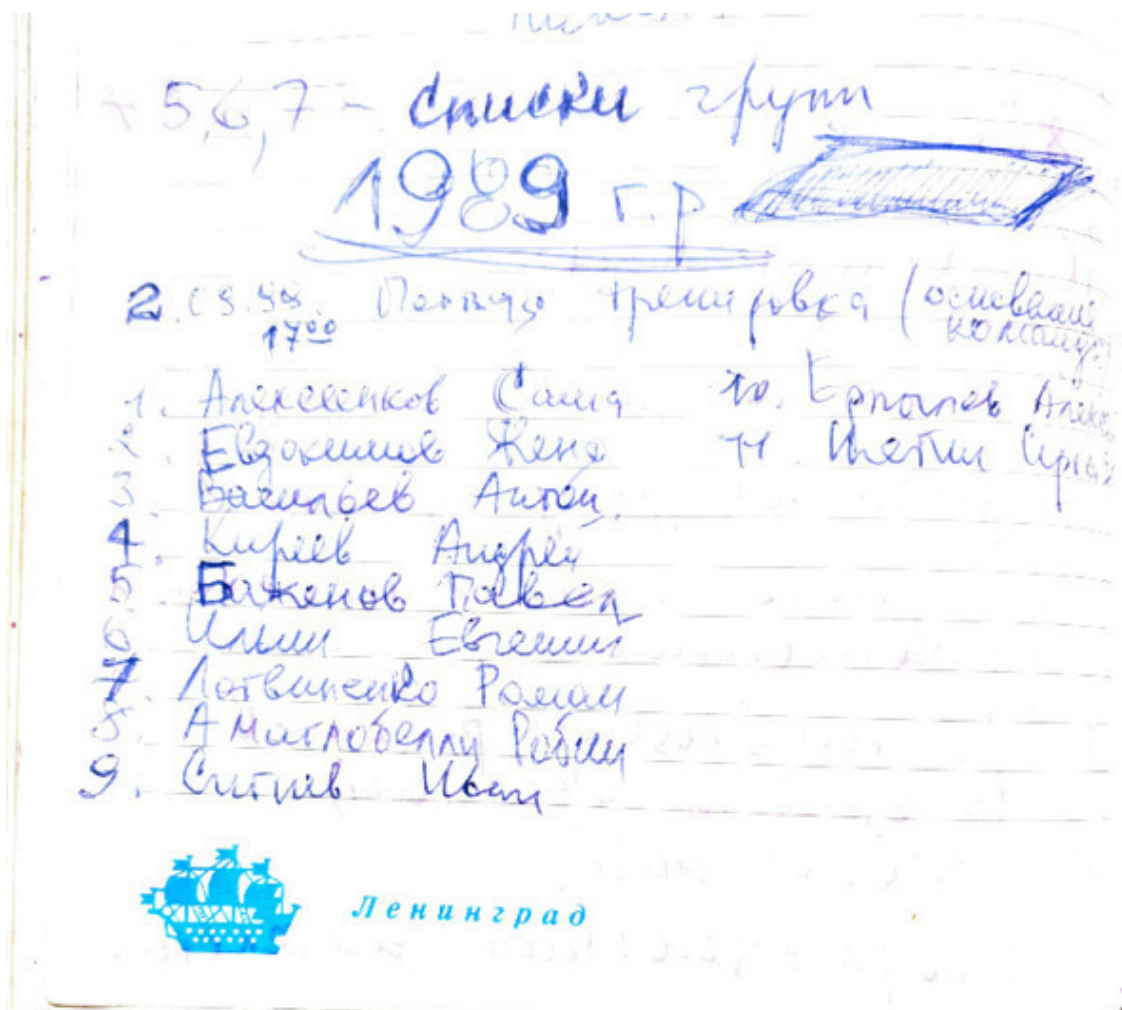 5,6,7 - списки групп
1989 г.р
2.09.98. Первая тренировка (основание
17⁰⁰ команды)
1. Алексеенков Саша
2. Евдокимов Женя
3. Васильев Антон
4. Киреев Андрей
5. Баженов Павел
6. Ильин Евгений
7. Литвиненко Роман
8. Амаглобелли Робин
9. Ситнев Иван
10. Ермолаев Алекс
11. Сергей
Ленинград